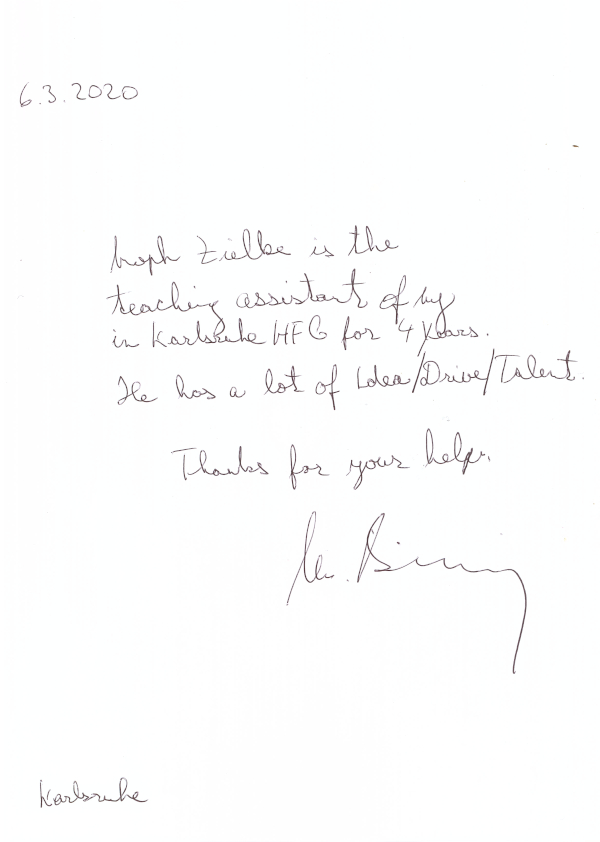 6.3.2020
Zielke is the
teaching assistant of my
in Karlsruhe HFG for 4 years.
He has a lot of Idea/Drive/Talent.
Thanks for your help.
Karlsruhe